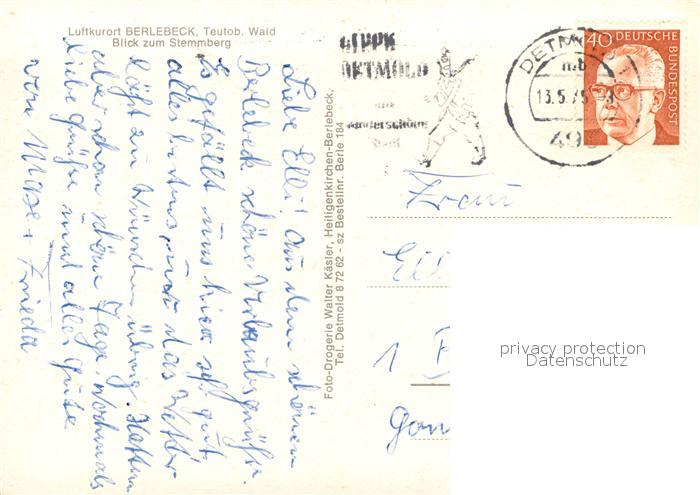 Luftkurort BERLEBECK, Teutob. Wald
Blick zum Stemmberg
Liebe Elli! Aus dem schönen
Berlebeck schöne Urlaubsgrüße.
Es gefällt uns hier sehr gut
alles bestens, nur das Wetter
läßt zu Wünschen übrig. Hatten
aber schon schöne Tage. Nochmals
liebe Grüße und alles Gute
von Mase + Frieda
Foto-Drogerie Walter Käsler, Heiligenkirchen-Berlebeck,
Tel. Detmold 8 72 62 - sz Bestellnr. Berle 184
LIPPE
DETMOLD
wunderschöne
DETMOLD
13.5.75
493
40 DEUTSCHE BUNDESPOST
Frau
Ell
1 B
privacy protection
Datenschutz